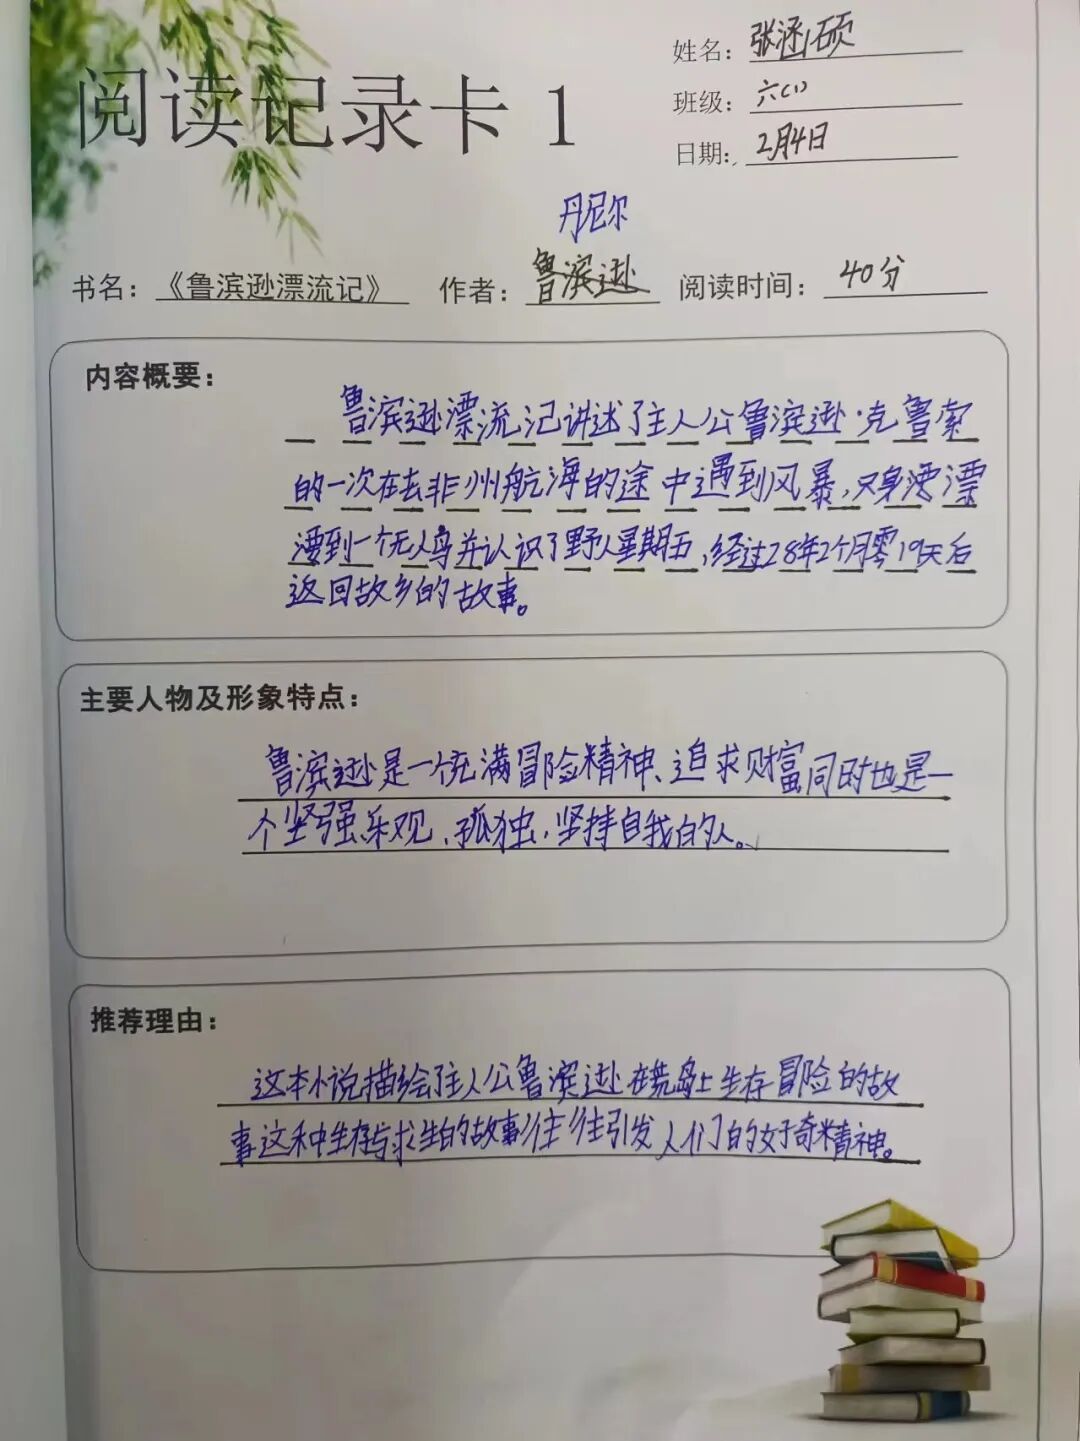 阅读记录卡 1
姓名：张涵硕
班级：六(1)
日期：2月4日
丹尼尔
书名：《鲁滨逊漂流记》 作者：鲁滨逊 阅读时间：40分
内容概要：
鲁滨逊漂流记讲述了主人公鲁滨逊·克鲁索
的一次在去非州航海的途中遇到风暴，只身漂漂
漂到一个无人岛并认识了野人星期五，经过28年2个月零19天后
返回故乡的故事。
主要人物及形象特点：
鲁滨逊是一个充满冒险精神、追求财富同时也是一
个坚强、乐观、孤独，坚持自我的人。
推荐理由：
这本小说描绘了主人公鲁滨逊在荒岛上生存冒险的故
事这种生存与求生的故事往往引发人们的好奇精神。